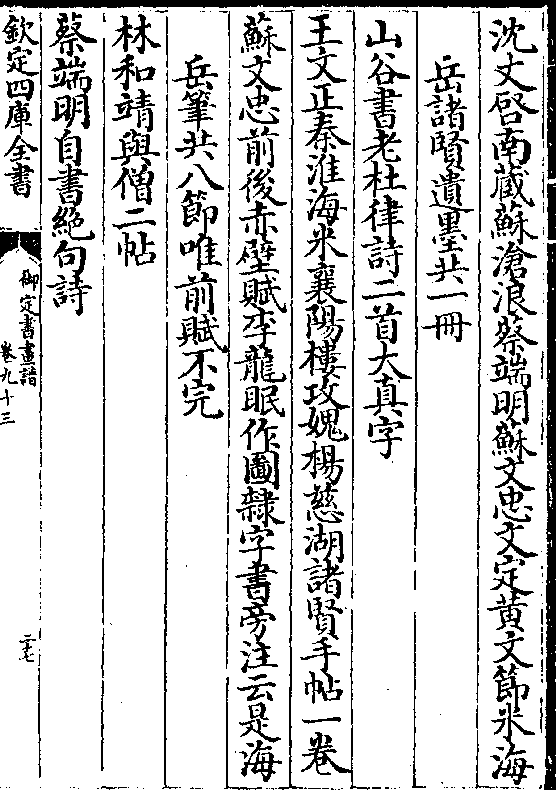 沈文啓南藏蘇滄浪蔡端明蘇文忠文定黄文節米海
岳諸賢遺墨共一冊
山谷書老杜律詩二首大真字
王文正秦淮海米襄陽樓攻媿楊慈湖諸賢手帖一巻
蘇文忠前後赤壁賦李龍眠作圖隸字書旁注云是海
岳筆共八節唯前賦不完
林和靖與僧二帖
蔡端明自書絶句詩
欽定四庫全書
御定書畫譜
卷九十三
三七